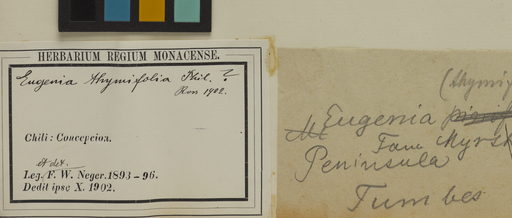 HERBARIUM REGIUM MONACENSE.
Eugenia thymifolia Phil. ?
Rev 1902.
Chili: Concepcion.
et det.
Leg. F. W. Neger. 1893-96.
Dedit ipse X. 1902.
(thymif
Eugenia
Fam Myrt
Peninsula
Tumbes